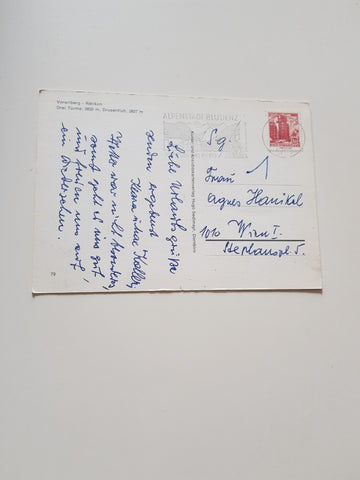 Vorarlberg - Rätikon
Drei Türme, 2830 m, Drusenfluh, 2827 m
ALPENSTADT BLUDENZ
Liebe Urlaubsgrüße
senden ergebenst
Wetter war nicht besonders,
sonst geht es uns gut
und freuen uns auf
ein Wiedersehen.
Frau
Agnes Hanikel
1010 Wien I.
Stephanspl. 5.
79